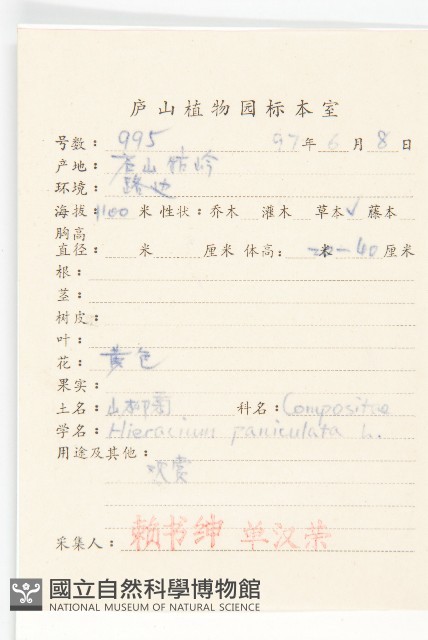 庐山植物园标本室
号数: 995 97年6月8日
产地: 庐山牯岭
环境: 路边
海拔: 1100 米 性状: 乔木 灌木 草本✓ 藤本
胸高
直径: 米 厘米 体高: 40 厘米
根:
茎:
树皮:
叶:
花: 黄色
果实:
土名: 山柳菊 科名: Compositae
学名: Hieracium paniculata L.
用途及其他:
采集人: 赖书绅 单汉荣
國立自然科學博物館
NATIONAL MUSEUM OF NATURAL SCIENCE